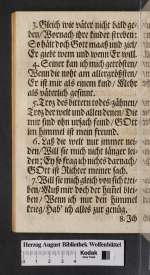 3. Gleich wie väter nicht bald ge-
ben/ Wornach ihre kinder streben:
So hält doch GOtt maaß und ziel/
Er giebt wem und wenn Er will.
4. Seiner kan ich mich getrösten/
Wenn die noht am allergrösten/
Er ist mir als einem kind/ Mehr
als väterlich gesinnt.
5. Trotz des bittern todes-zähnen/
Trotz der welt und allen denen/ Die
mir sind ohn ursach feind/ GOtt
im himmel ist mein freund.
6. Laß die welt nur immer nei-
den/ Will sie mich nicht länger lei-
den/ Ey so frag ich nichts darnach/
GOtt ist Richter meiner sach.
7. Will sie mich gleich von sich trei-
ben/ Muß mir doch der himel blei-
ben/ Wenn ich nur den himmel
krieg/ Hab' ich alles zur gnüg.
8. Ich
Herzog August Bibliothek Wolfenbüttel